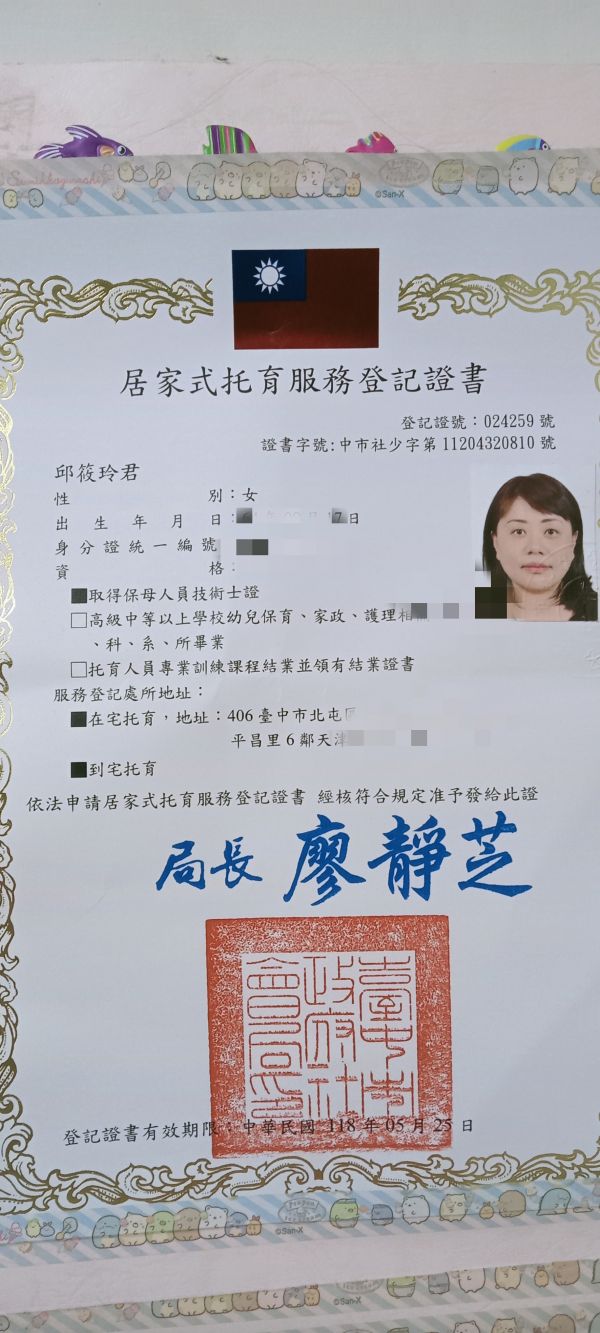 Sumikkogurashi
©San-X
居家式托育服務登記證書
登記證號：024259 號
證書字號:中市社少字第 11204320810 號
邱筱玲君
性別：女
出生年月日：日
身分證統一編號
資格：
■取得保母人員技術士證
□高級中等以上學校幼兒保育、家政、護理相
、科、系、所畢業
□托育人員專業訓練課程結業並領有結業證書
服務登記處所地址：
■在宅托育，地址：406 臺中市北屯
平昌里 6 鄰天津
■到宅托育
依法申請居家式托育服務登記證書 經核符合規定准予發給此證
局長 廖靜芝
臺中市政府社會局印
登記證書有效期限：中華民國 118 年 05 月 25 日
©San-X
©San-X